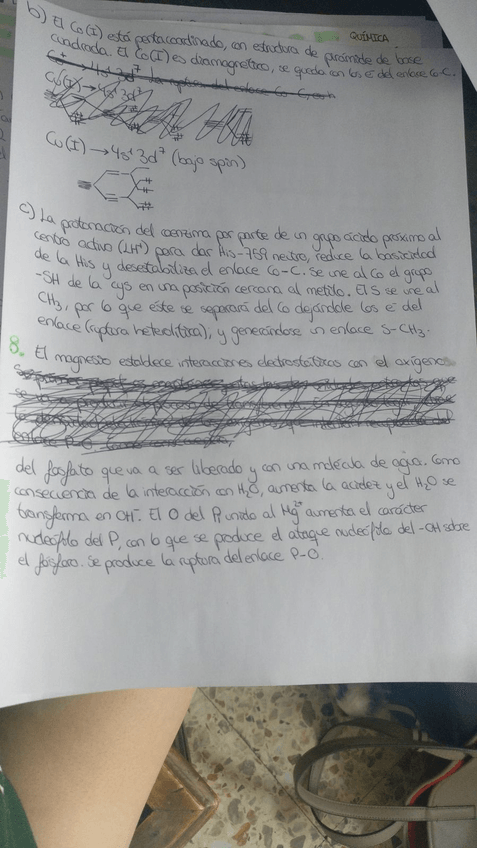 QUÍMICA
b) El Co(I) está pentacoordinado, con estructura de pirámide de base
cuadrada. El Co(I) es diamagnético, se queda con los e⁻ del enlace Co-C.
Co(I) → 4s¹ 3d⁷
Co(I) → 4s¹ 3d⁷ (bajo spin)
c) La protonación del coenzima por parte de un grupo ácido próximo al
centro activo (LH⁺) para dar His-759 neutro, reduce la basicidad
de la His y desestabiliza el enlace Co-C. Se une al Co el grupo
-SH de la cys en una posición cercana al metilo. El S se une al
CH₃, por lo que éste se separará del Co dejándole los e⁻ del
enlace (ruptura heterolítica), y generándose un enlace S-CH₃.
8. El magnesio establece interacciones electrostáticas con el oxígeno
del fosfato que va a ser liberado y con una molécula de agua. Como
consecuencia de la interacción con H₂O, aumenta la acidez y el H₂O se
transforma en OH⁻. El O del P, unido al Mg²⁺ aumenta el carácter
nucleófilo del P, con lo que se produce el ataque nucleófilo del -OH sobre
el fósforo. Se produce la ruptura del enlace P-O.